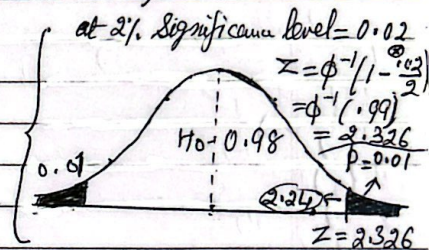 at 2% Significance level = 0.02
Z = ϕ⁻¹(1 - 0.02/2)
= ϕ⁻¹(.99)
= 2.326
H₀ - 0.98
0.01
P = 0.01
2.24 ←
Z = 2326